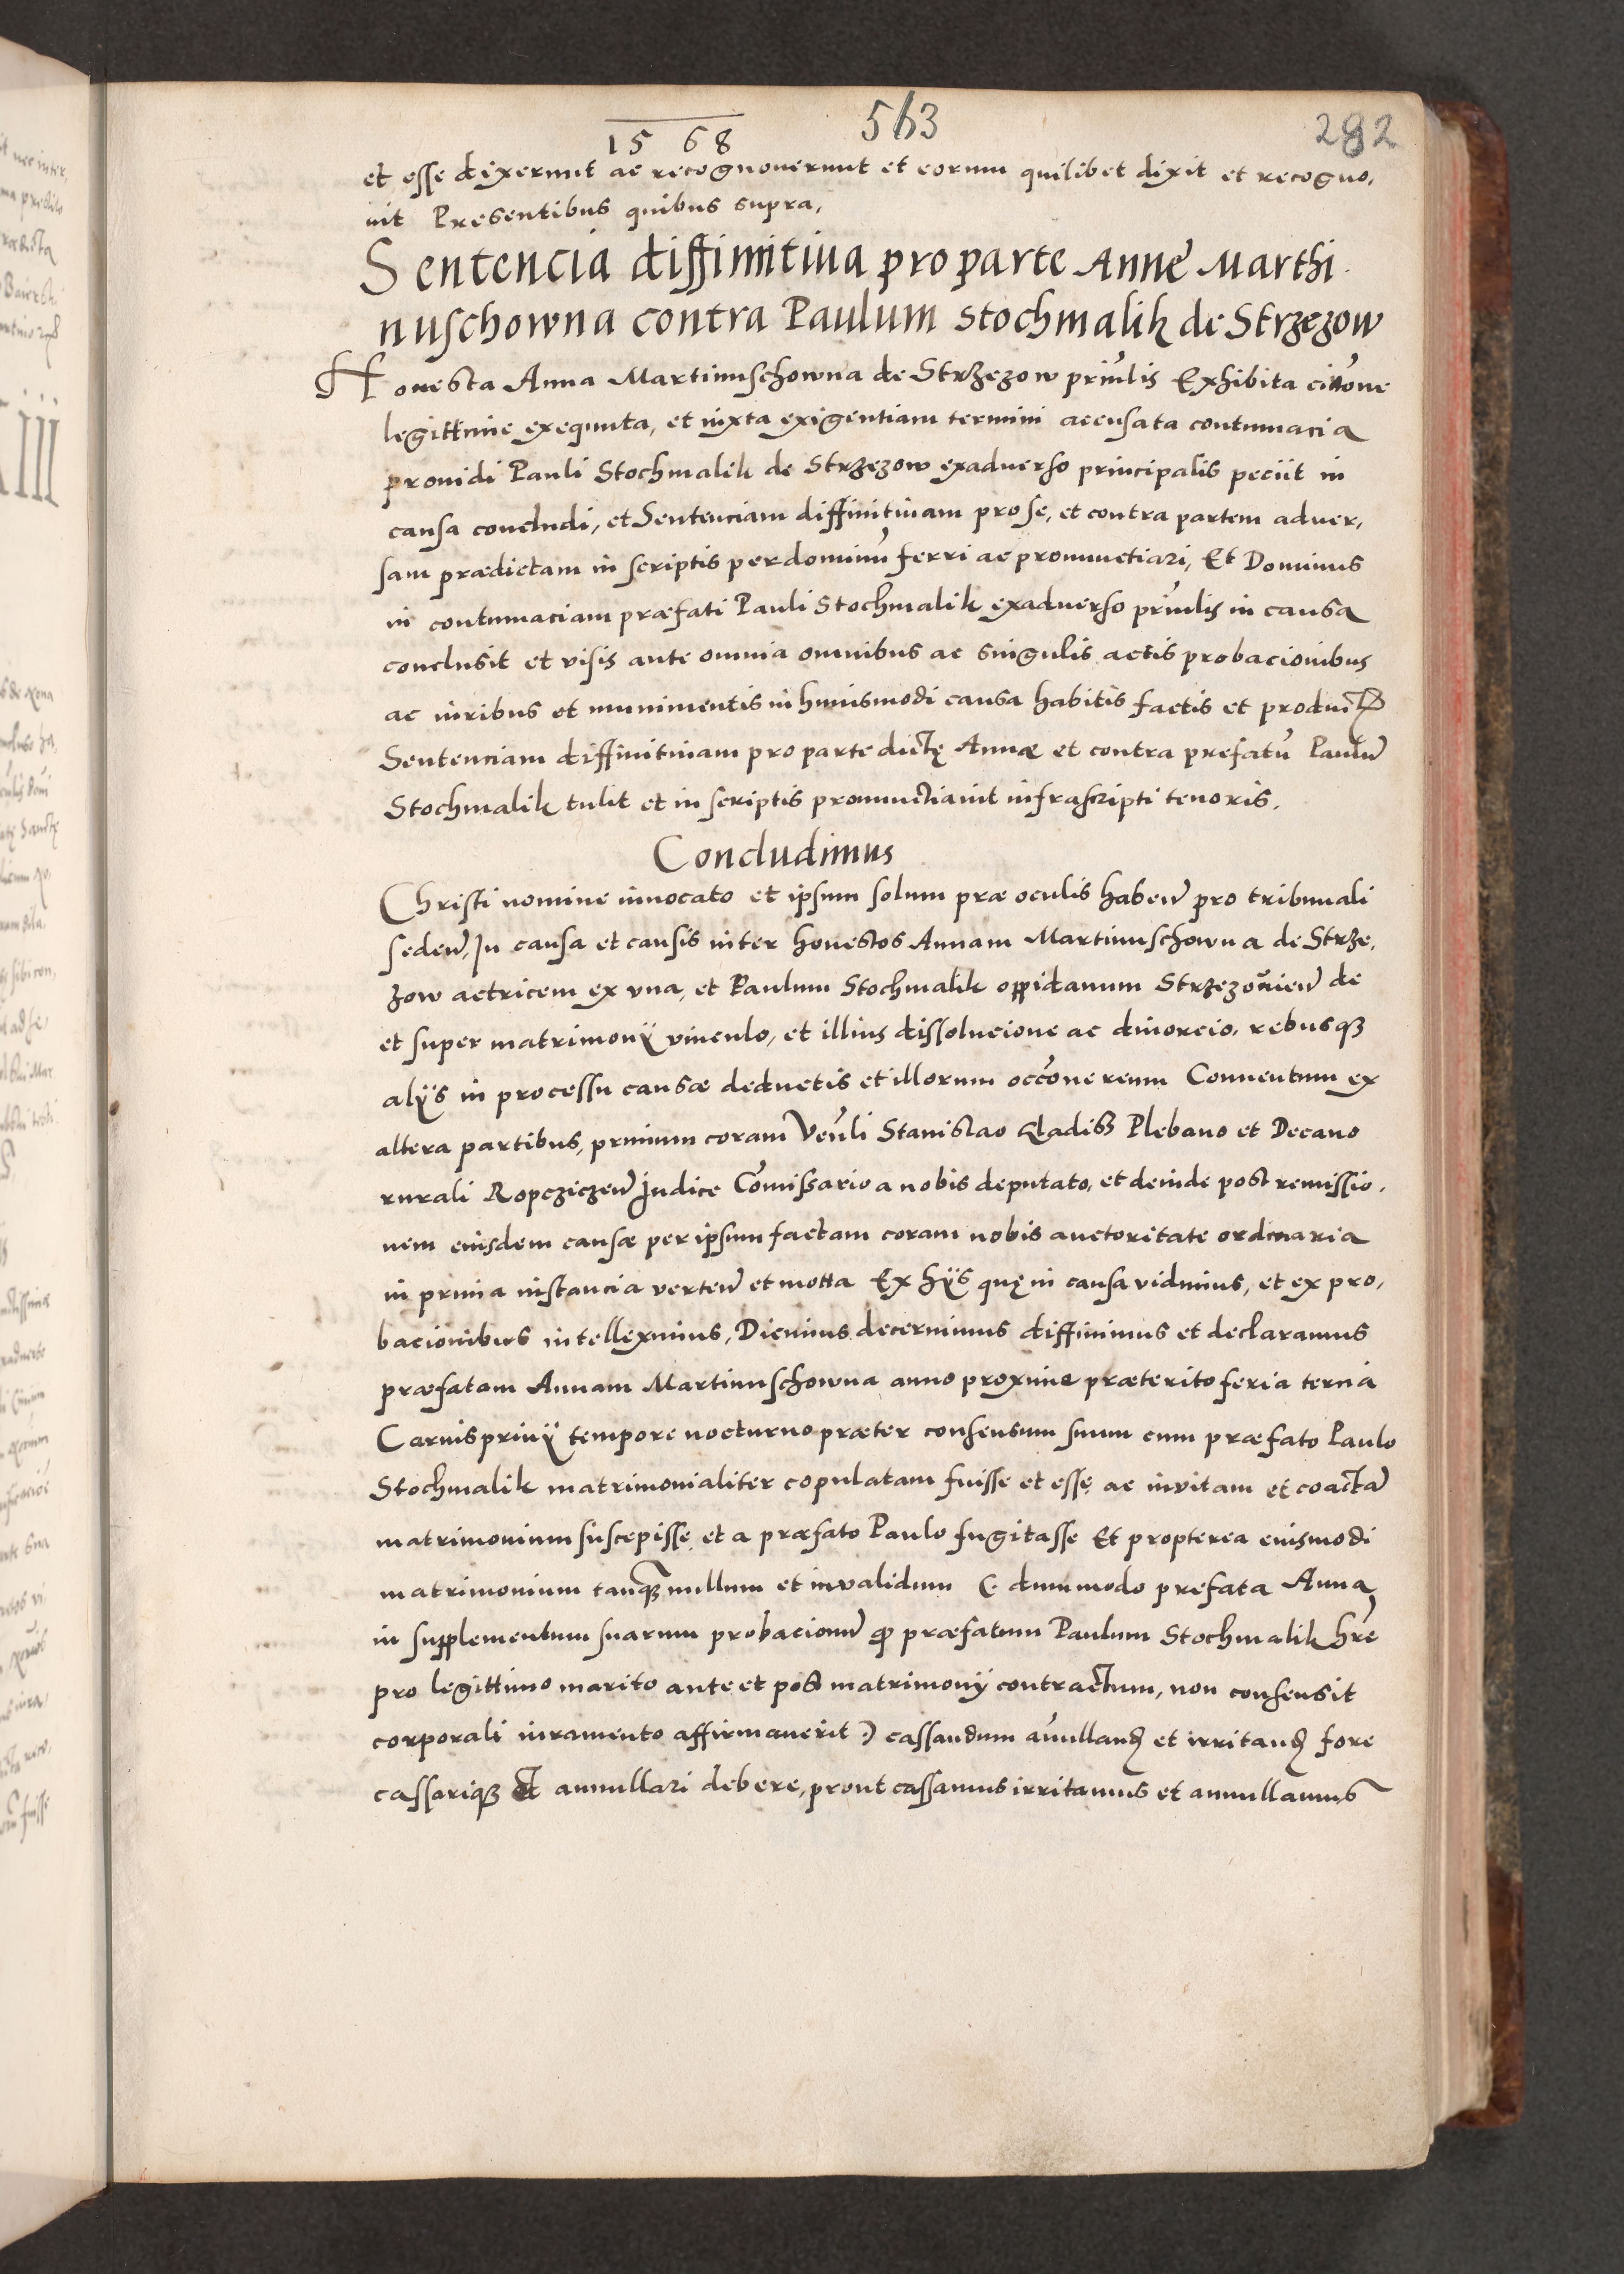 563
282
15 68
et esse dixerunt ac recognouerunt et eorum quilibet dixit et recogno,
uit Presentibus quibus supra,
Sentencia diffinitiua pro parte Anne Marthi
nuschowna contra Paulum Stochmalik de Strzezow
Honesta Anna Martinuschowna de Strzezow prin̄lis Exhibita citōne
legittime exequuta, et iuxta exigentiam termini accusata contumacia
prouidi Pauli Stochmalik de Strzezow exaduerso principalis peciit in
causa concludi, et Sentenciam diffinitiuam pro se, et contra partem aduer,
sam prædictam in scriptis per dominū ferri ac pronunctiari, Et Dominus
in contumaciam præfati Pauli Stochmalik exaduerso prin̄lis in causa
conclusit et visis ante omnia omnibus ac singulis actis probacionibus
ac iuribus et munimentis in huiusmodi causa habitis factis et productꝭ
Sentenciam diffinitiuam pro parte dictę Annæ et contra prefatū Paulū
Stochmalik tulit et in scriptis pronunctiauit infrascripti tenoris.
Concludimus
Christi nomine inuocato et ipsum solum præ oculis habeñ pro tribunali
sedeñ, In causa et causis inter honestos Annam Martinuschowna de Strze,
zow actricem ex vna, et Paulum Stochmalik oppidanum Strzezouieñ de
et super matrimonij vinculo, et illius dissolucione ac diuorcio, rebusqꝫ
alijs in processu causæ deductis et illorum occōne reum Conuentum ex
altera partibus, primum coram Veñli Stanislao Gladisz Plebano et Decano
rurali Ropcziczeñ Judice Cōmissario a nobis deputato, et deinde post remissio,
nem eiusdem causæ per ipsum factam coram nobis auctoritate ordinaria
in prima instancia verteñ et motta Ex hijs quę in causa vidimus, et ex pro,
bacionibus intelleximus, Dicimus decernimus diffinimus et declaramus
præfatam Annam Martinuschowna anno proxime præterito feria tercia
Carnispriuij tempore nocturno præter consensum suum cum præfato Paulo
Stochmalik matrimonialiter copulatam fuisse et esse, ac invitam et coactā
matrimonium suscepisse, et a præfato Paulo fugitasse Et propterea eiusmodi
matrimonium tanqꝫ nullum et invalidum (. dummodo prefata Anna
in supplementum suarum probacionū ꝙ præfatum Paulum Stochmalik hr̄e
pro legittimo marito ante et post matrimonij contractum, non consensit
corporali iuramento affirmauerit .) cassandum an̄ullanđ et irritanđ fore
cassariqꝫ et annullari debere, prout cassamus irritamus et annullamus